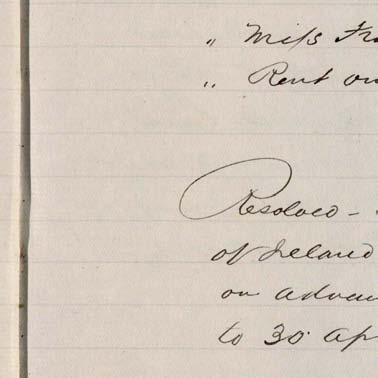 " Miss Fra
" Rent on
Resolved -
of Ireland
on advan
to 30 Ap